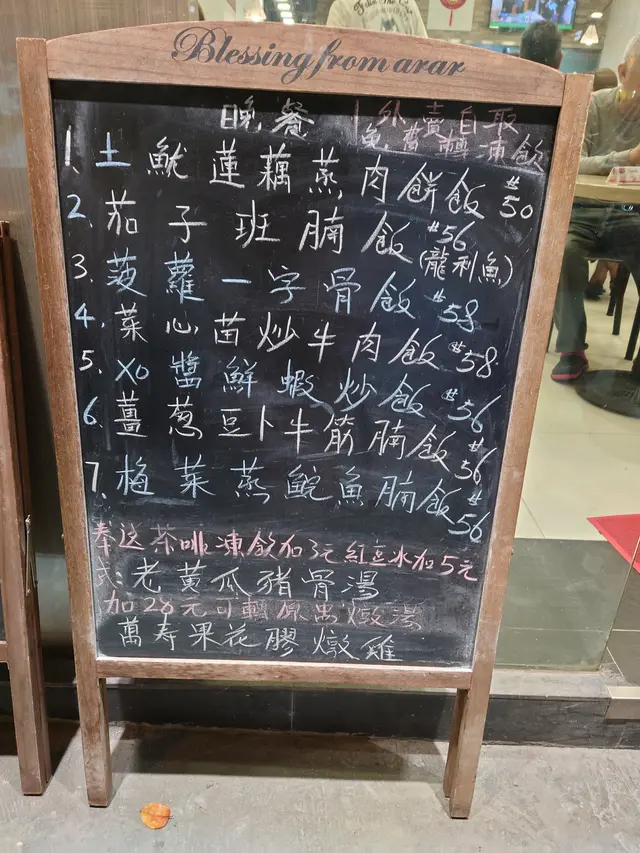 Blessing from arar
晚餐
外賣自取
免費轉凍飲
1. 土魷蓮藕蒸肉餅飯 #50
2. 茄子班腩飯 #56
(龍利魚)
3. 菠蘿一字骨飯 #58
4. 菜心苗炒牛肉飯 #58
5. XO醬鮮蝦炒飯 #56
6. 薑蔥豆卜牛筋腩飯 #56
7. 梅菜蒸鯇魚腩飯 #56
奉送茶啡凍飲加3元紅豆冰加5元
老黃瓜豬骨湯
加28元可轉原盅燉湯
萬寿果花膠燉雞